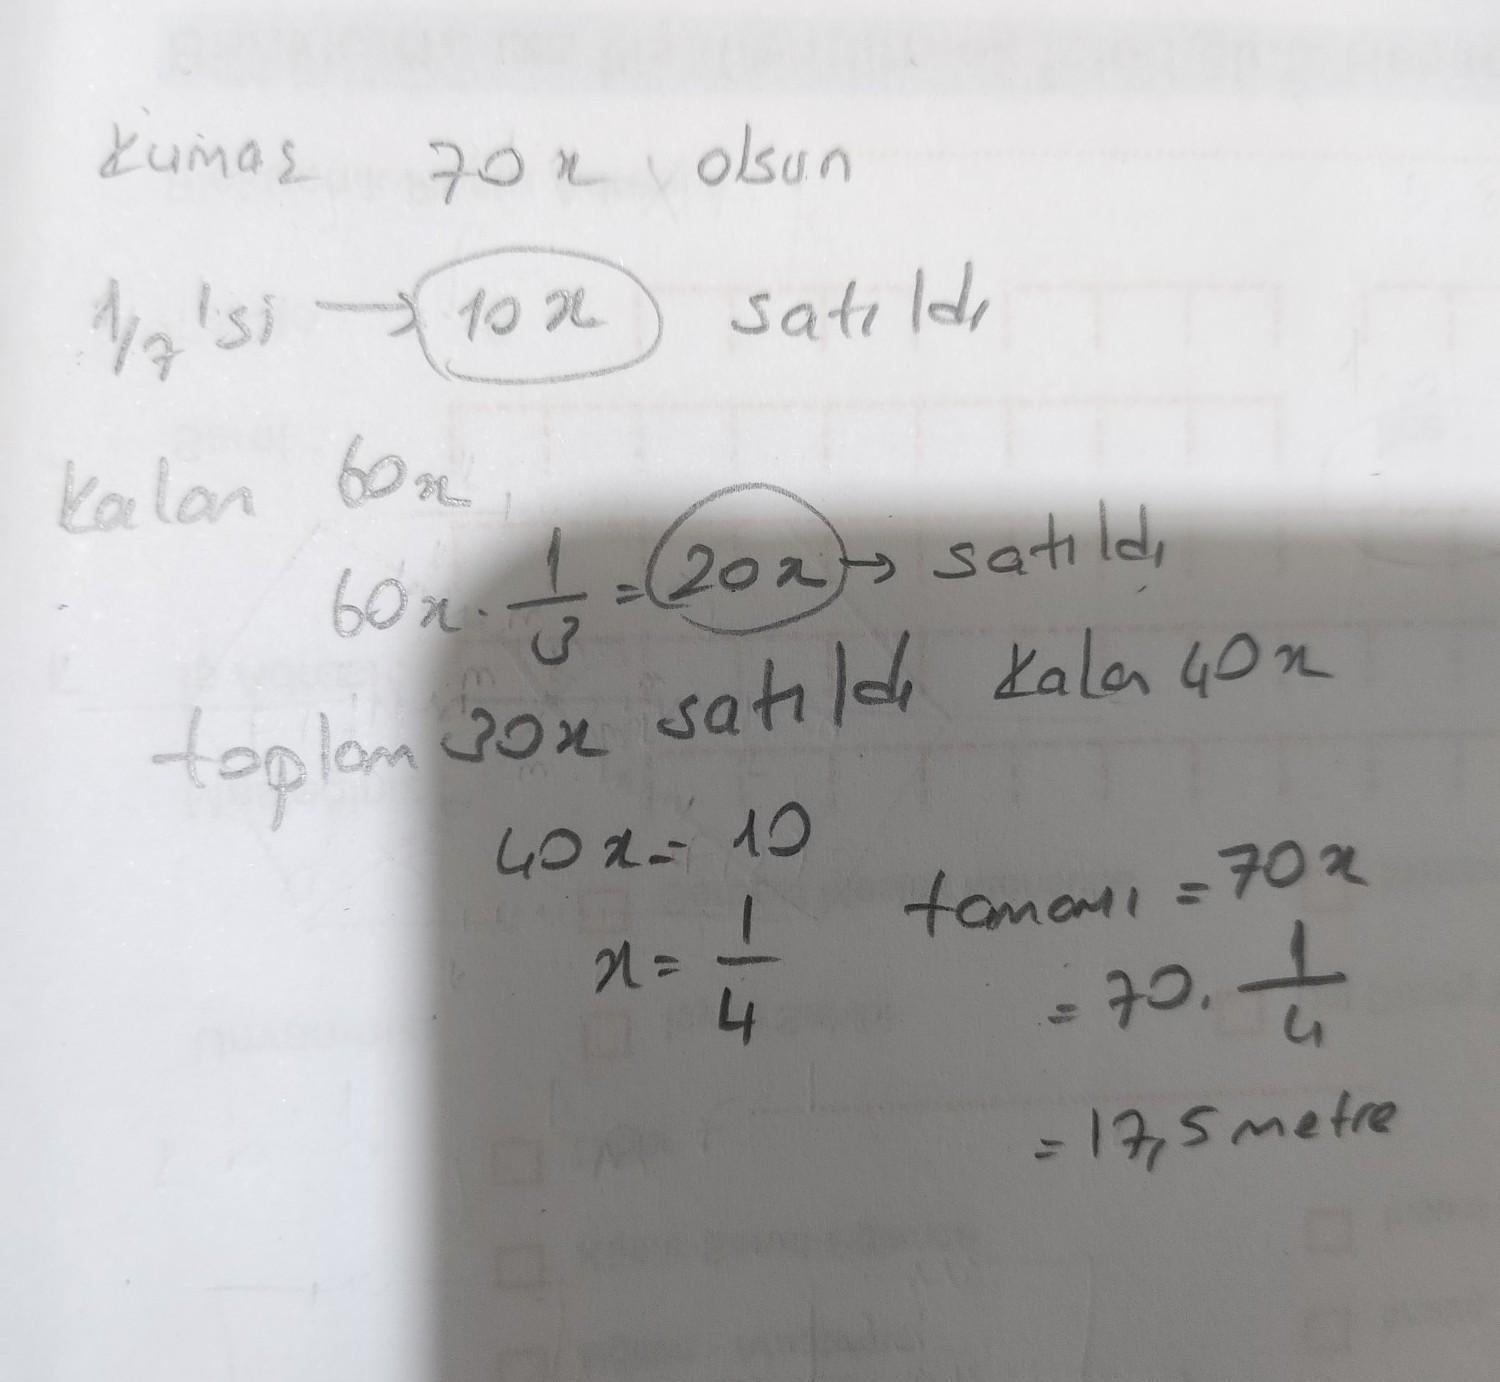 kumaş 70x olsun
1/7'si → 10x satıldı
kalan 60x
60x · 1/3 = 20x → satıldı
toplam 30x satıldı kalan 40x
40x = 10
x = 1/4
tamamı = 70x
= 70 · 1/4
= 17,5 metre